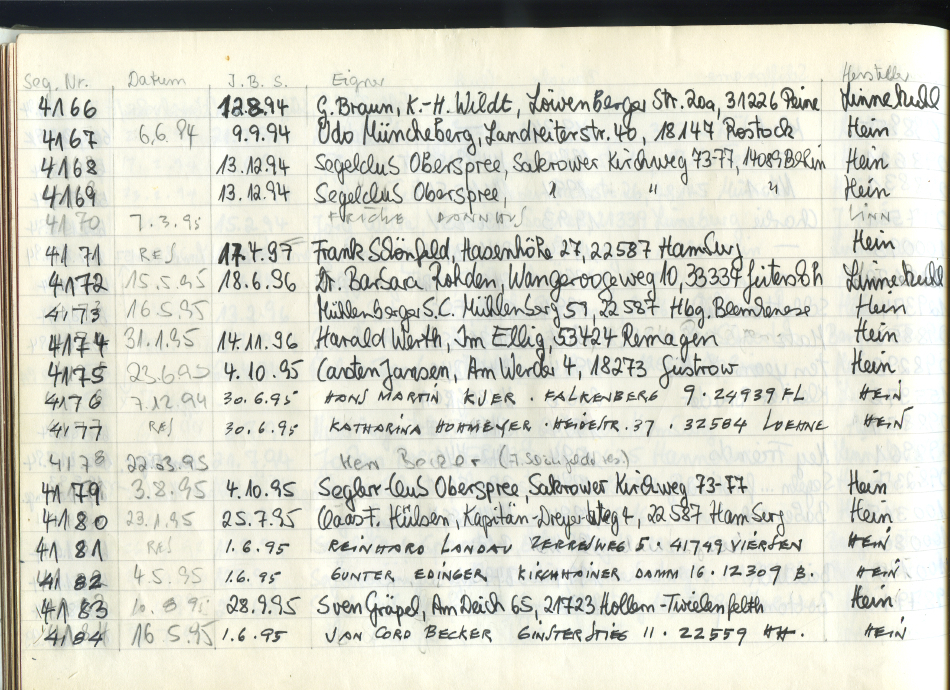 Seg. Nr. Datum J.B.S. Eigner Hersteller
4166 12.8.94 G. Braun, K.-H. Wildt, Löwenberger Str. 20a, 31226 Peine Linnekuhl
4167 6.6.94 9.9.94 Udo Müncheberg, Landreiterstr. 40, 18147 Rostock Hein
4168 13.12.94 Segelclus Oberspree, Sakrower Kirchweg 73-77, 14089 Berlin Hein
4169 13.12.94 Segelclus Oberspree, " " " Hein
4170 7.3.95 LINN
4171 RES 17.4.97 Frank Schönfeld, Hasenhöhe 27, 22587 Hamburg Hein
4172 15.5.95 18.6.96 Dr. Barbara Rohden, Wangeroogeweg 10, 33334 Gütersloh Linnekuhl
4173 16.5.95 Mühlenberger S.C. Mühlenberg 51, 22587 Hbg. Blankenese Hein
4174 31.1.95 14.11.96 Harald Werth, Im Ellig, 53424 Remagen Hein
4175 23.6.95 4.10.95 Carsten Janssen, Am Werder 4, 18273 Güstrow Hein
4176 7.12.94 30.6.95 HANS MARTIN KJER · FALKENBERG 9 · 24939 FL HEIN
4177 RES 30.6.95 KATHARINA HOHMEYER · HEIDESTR. 37 · 32584 LOEHNE HEIN
4178 22.3.95 Herr
4179 3.8.95 4.10.95 Segler-Club Oberspree, Sakrower Kirchweg 73-77 Hein
4180 23.1.95 25.7.95 Claas F. Hülsen, Kapitän-Dreyer-Weg 4, 22587 Hamburg Hein
4181 RES 1.6.95 REINHARD LANDAU ZERRESWEG 5 · 41749 VIERSEN HEIN
4182 4.5.95 1.6.95 GUNTER EDINGER KIRCHHAINER DAMM 16 · 12309 B. HEIN
4183 28.9.95 Sven Gräpel, Am Deich 65, 21723 Hollern-Twielenfleth Hein
4184 16.5.95 1.6.95 JAN CORD BECKER GINSTERSTIEG 11 · 22559 HH. HEIN